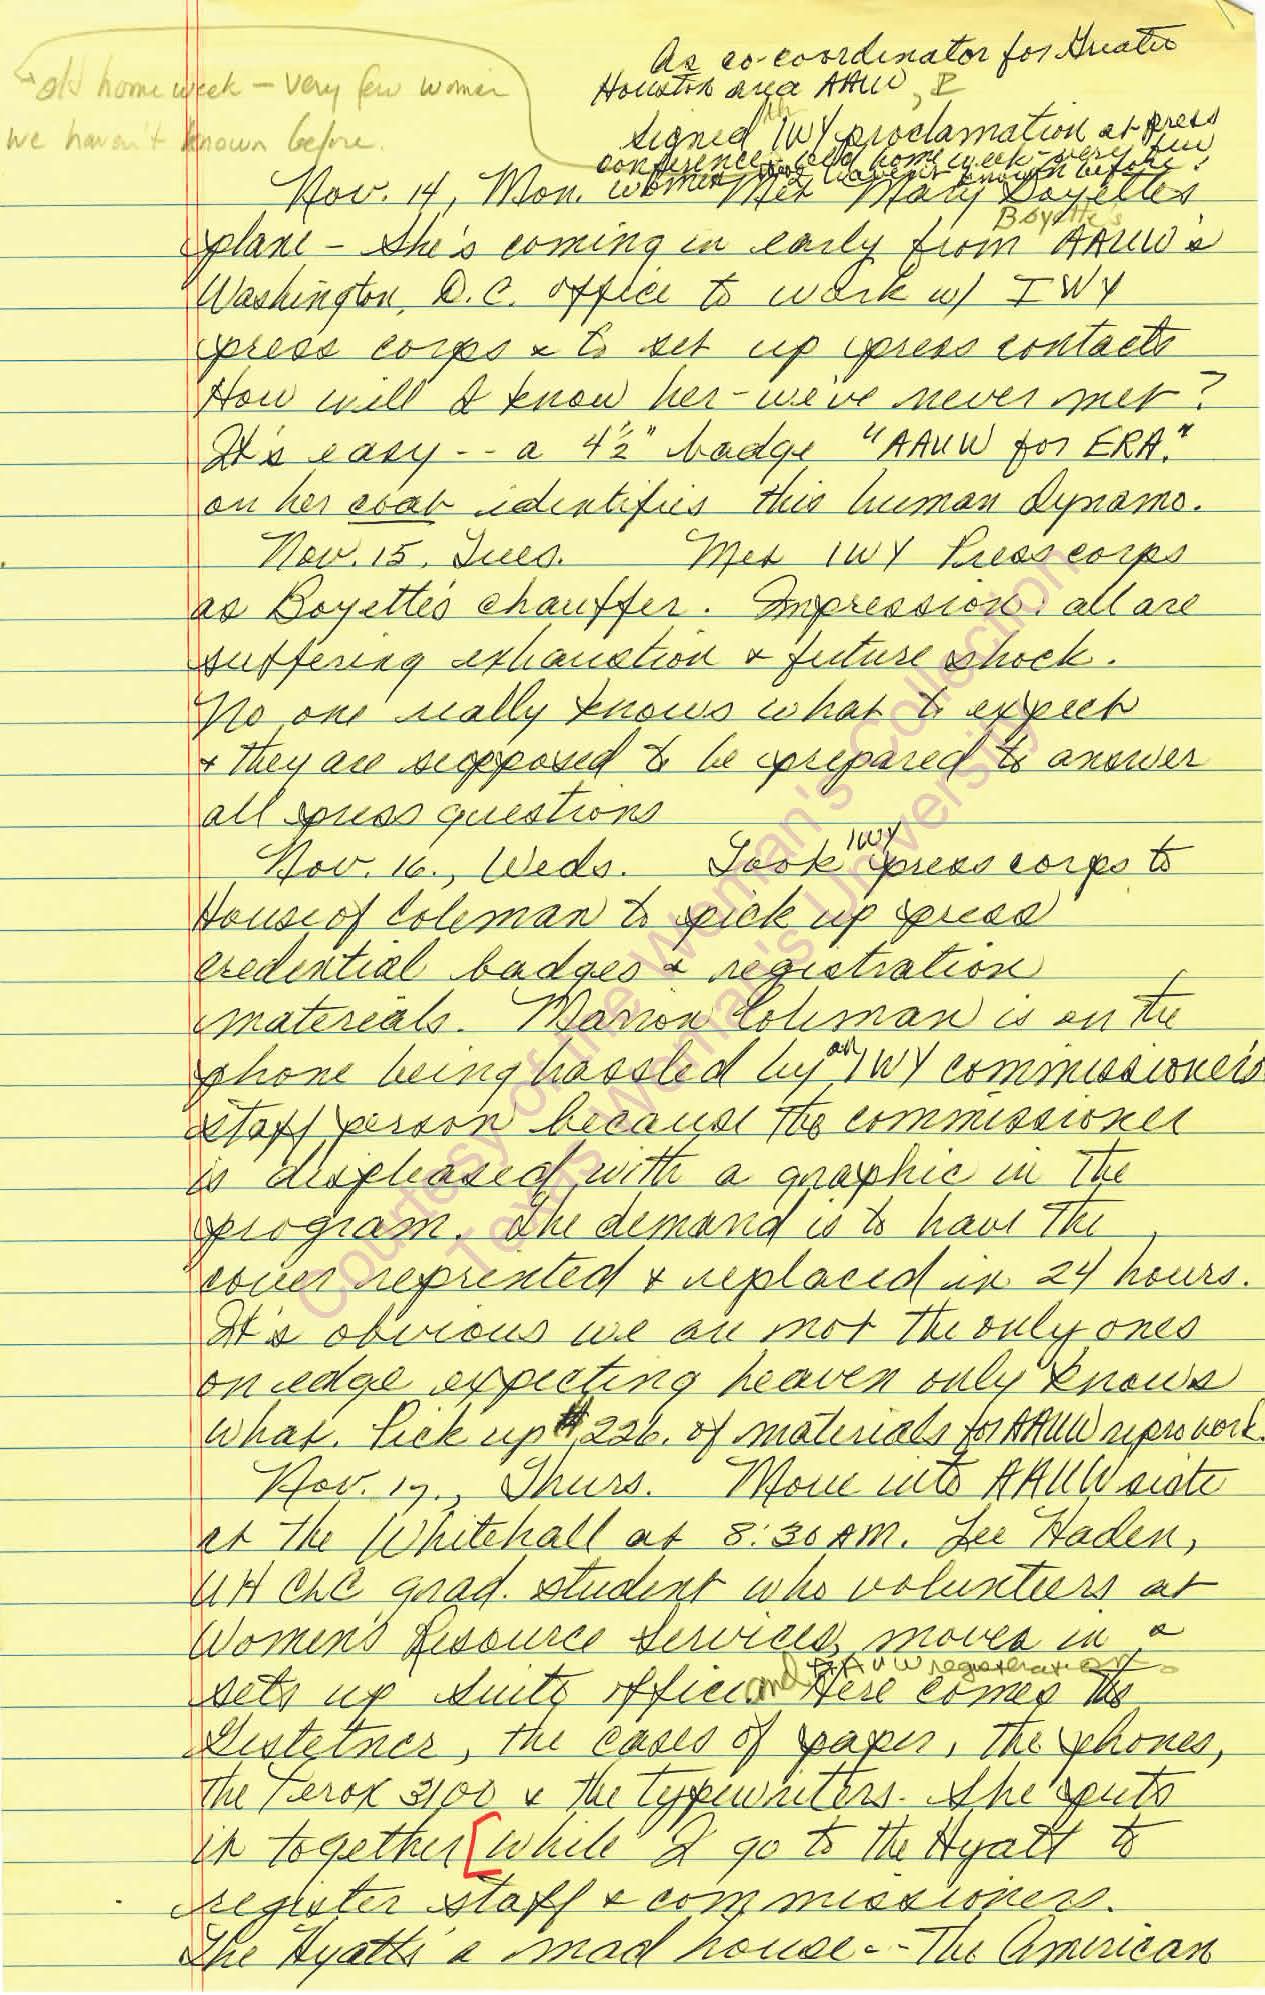 old home week – very few women
we haven't known before.
As co-coordinator for Greater
Houston area AAUW, I
signed the IWY proclamation at press
conference – old home week – very few
women we haven't known before!
Nov. 14, Mon. Met Mary Boyette's
Boyette's
plane – she's coming in early from AAUW's
Washington, D.C. office to work w/ IWY
press corps & to set up press contacts
How will I know her – we've never met?
It's easy -- a 4½" badge "AAUW for ERA"
on her coat identifies this human dynamo.
Nov. 15, Tues. Met IWY Press corps
as Boyette's chauffer. Impression: all are
suffering exhaustion & future shock.
No one really knows what to expect
& they are supposed to be prepared to answer
all press questions
Nov. 16., Weds. Took IWY press corps to
House of Coleman to pick up press
credential badges & registration
materials. Marion Coleman is on the
phone being hassled by an IWY commissioner's
staff person because the commissioner
is displeased with a graphic in the
program. The demand is to have the
cover reprinted & replaced in 24 hours.
It's obvious we are not the only ones
on edge expecting heaven only knows
what. Pick up $226. of materials for AAUW repro work.
Nov. 17., Thurs. Move into AAUW suite
at the Whitehall at 8:30 AM. Lee Haden,
UH CLC grad. student who volunteers at
Women's Resource Services, moves in &
sets up suite office and AAUW registration.
Here comes the
Gestetner, the cases of paper, the phones,
the Xerox 3100 & the typewriters. She puts
it together [while I go to the Hyatt to
register staff & commissioners.
The Hyatt's a mad house -- The American
Courtesy of the Woman's Collection
Texas Woman's University